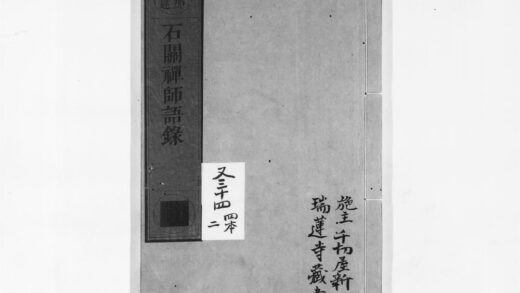 石關禪師語錄
又三十四
四本
二
施主千切屋新
瑞蓮寺藏